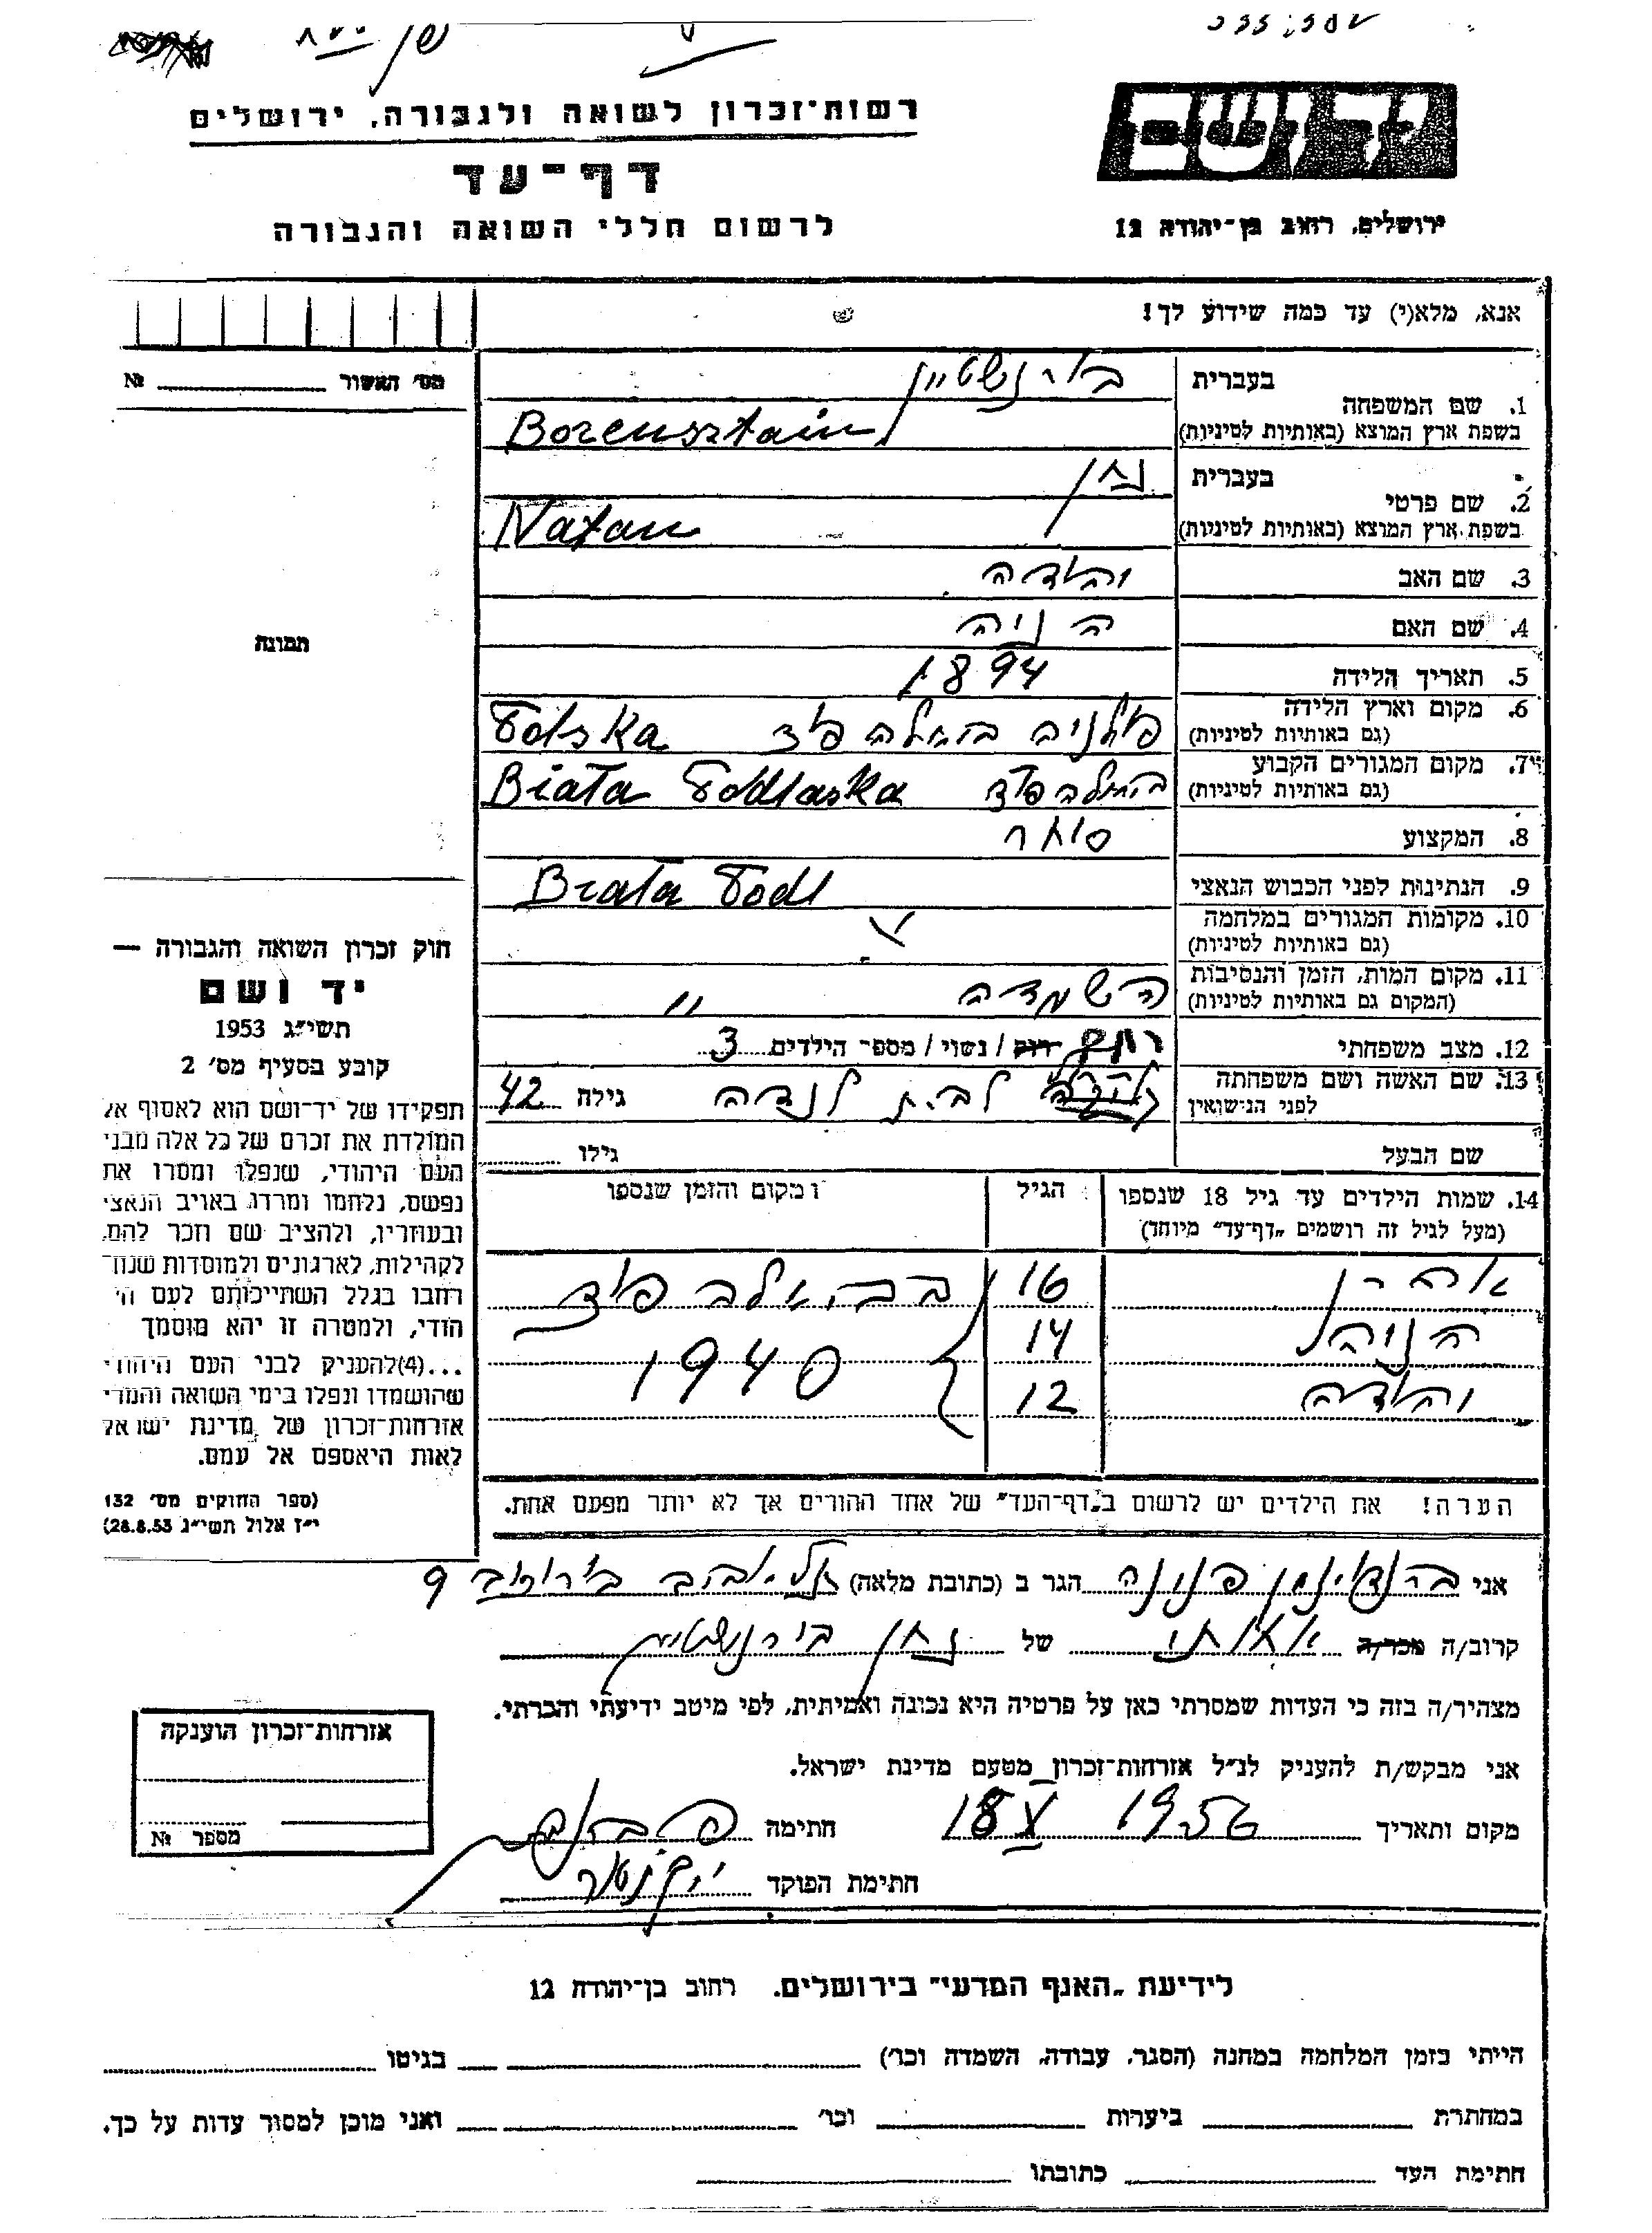 רשות־זכרון לשואה ולגבורה, ירושלים
דף־עד
לרשום חללי השואה והגבורה
ידושם
ירושלים, רחוב בן־יהודה 12
אנא, מלא(י) עד כמה שידוע לך!
מס׳ האשור № 
תמונה
1. שם המשפחה
בעברית בורנשטיין
בשפת ארץ המוצא (באותיות לטיניות) Borensztain
2. שם פרטי
בעברית נתן
בשפת ארץ המוצא (באותיות לטיניות) Natan
3. שם האב יהודה
4. שם האם
5. תאריך הלידה 1894
6. מקום וארץ הלידה
(גם באותיות לטיניות) פולניה ביאלה פוד Polska
7. מקום המגורים הקבוע
(גם באותיות לטיניות) ביאלה פוד Biała Podlaska
8. המקצוע סוחר
9. הנתינות לפני הכבוש הנאצי Biała Podl
10. מקומות המגורים במלחמה
(גם באותיות לטיניות)
11. מקום המות, הזמן והנסיבות
(המקום גם באותיות לטיניות) השמדה "
12. מצב משפחתי רווק / נשוי / מספר הילדים 3
13. שם האשה ושם משפחתה
לפני הנישואין לבית לנדה גילה 42
שם הבעל גילו
14. שמות הילדים עד גיל 18 שנספו
(מעל לגיל זה רושמים "דף־עד" מיוחד)
הגיל
ומקום והזמן שנספו
אהרן 16 בביאלה פוד
14 1940
יהודה 12
הערה! את הילדים יש לרשום ב"דף־העד" של אחד ההורים אך לא יותר מפעם אחת.
חוק זכרון השואה והגבורה —
יד ושם
תשי״ג 1953
קובע בסעיף מס׳ 2
תפקידו של יד־ושם הוא לאסוף אל
המולדת את זכרם של כל אלה מבני
העם היהודי, שנפלו ומסרו את
נפשם, נלחמו ומרדו באויב הנאצי
ובעוזריו, ולהציב שם וזכר להם,
לקהילות, לארגונים ולמוסדות שנח־
רחבו בגלל השתייכותם לעם הי
הודי, ולמטרה זו יהא מוסמך
...(4)להעניק לבני העם היהודי
שהושמדו ונפלו בימי השואה והמרי
אזרחות־זכרון של מדינת ישראל
לאות היאספם אל עמם.
(ספר החוקים מס׳ 132
י״ז אלול תשי״ג 28.8.53)
אני פנינה הגר ב (כתובת מלאה) תל אביב 9
קרוב/ה מכר/ה של נתן בורנשטיין
מצהיר/ה בזה כי העדות שמסרתי כאן על פרטיה היא נכונה ואמיתית, לפי מיטב ידיעתי והכרתי.
אני מבקש/ת להעניק לנ״ל אזרחות־זכרון מטעם מדינת ישראל.
מקום ותאריך 18 X 1956 חתימה
חתימת הפוקד
אזרחות־זכרון הוענקה
מספר №
לידיעת "האנף המדעי" בירושלים, רחוב בן־יהודה 12
הייתי בזמן המלחמה במחנה (הסגר, עבודה, השמדה וכו׳) בגיטו
במחתרת ביערות וכו׳ ואני מוכן למסור עדות על כך.
חתימת העד כתובתו